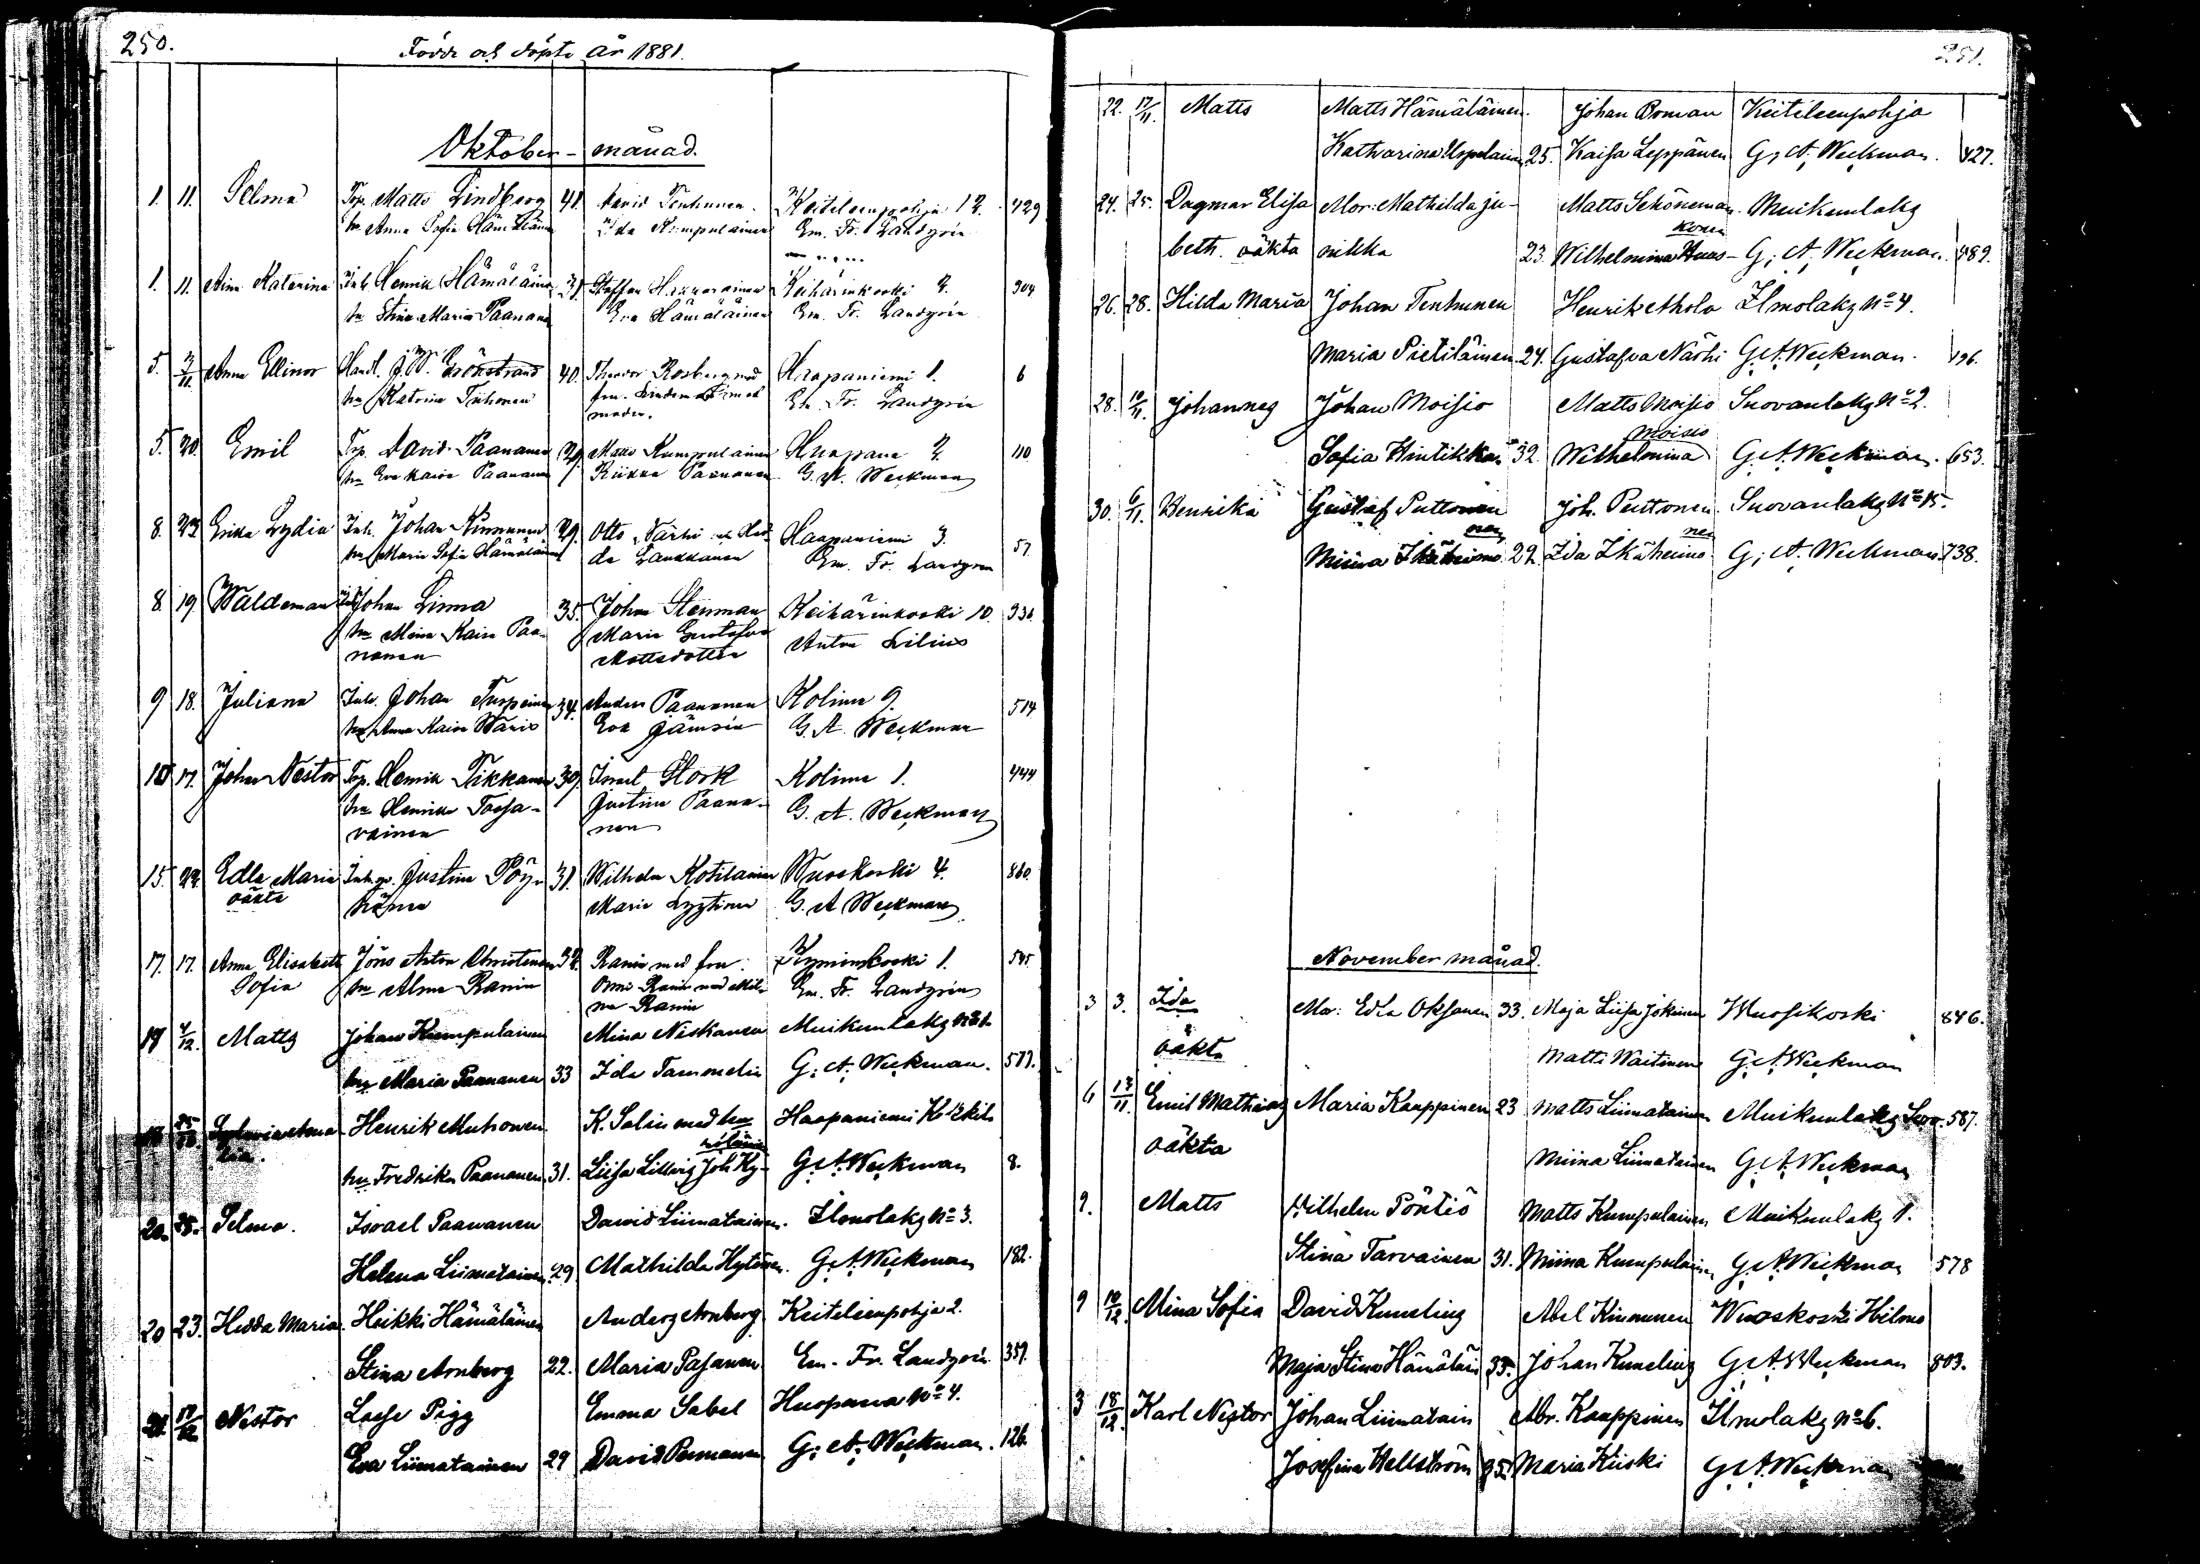 250.
Födde och döpte År 1881.
Oktober-månad.
1. 11. Selma Trp. Matts Lindberg 41. David Tenhunen Keiteleenpohja 12. 429
hu Anna Sofia Hämäläinen Ida Kumpulainen Em. Fr. Landgrén
1. 11. Aina Katarina Inh. Henrik Hämäläinen 31. Staffan Keihärinkoski 2. 304
hu Stina Maria Paananen Eva Hämäläinen Em. Fr. Landgrén
5. Anna Ellinor Handl. J. W. Grönstrand 40. Theodor Rosberg med Haapaniemi 1. 6
hu Katrina Tiihonen fru. Em. Fr. Landgrén
5. 20. Emil Trp. David Paananen 29. Matts Kumpulainen Huopana 2. 110
hu Eva Kaisa Paananen Riikka Paananen G. A. Weckman
8. 23 Erika Lydia Inh. Johan Kinnunen 29. Otto Närhi och Hed- Haapaniemi 3. 57
hu Maria Sofia Hämäläinen da Laukkanen Em. Fr. Landgren
8. 19 Waldemar Johan Linna 35. Johan Stenman Keihärinkoski 10. 336
hu Mina Kaisa Paa- Maria Gustafva Anton Lilius
nanen Mattsdotter
9 18. Juliana Inh. Johan Turpeinen 34. Anders Paananen Kolima 9. 514
hu Anna Kaisa Waris Eva Jämsén G. A. Weckman
10 17. Johan Nestor Trp. Henrik Tikkanen 39. Israel Stork Kolima 1. 444
hu Henrika Tossa- Justina Paana- G. A. Weckman
vainen nen
15. 22. Edla Maria Inh. Justina Pöy- 31. Wilhelm Kotilainen Wuoskoski 4. 860.
oäkta hönen Maria Lyytinen G. A. Weckman
17. 17. Anna Elisabeth Jöns Anton Christensen 34. Ranin med fru. Kyminkoski 1. 545
Sofia hu Alma Ranin Ranin Em. Fr. Landgrén
Ranin
17 4/12. Matts Johan Kumpulainen Mina Niskanen Muikunlaks
hu Maria Paananen 33 Ida Tammelin G. A. Weckman. 577.
Henrik Muhonen K. Salin med hu Haapaniemi
hu Fredrika Paananen 31. Liisa Joh. Hy- G. A. Weckman 8.
20. 25. Selma. Israel Paananen David Liimatainen. Ilmolaks No 3.
Helena Liimatainen 29. Mathilda Hytönen. G. A. Weckman 182.
20 23. Hedda Maria. Heikki Hämäläinen Anders Arnberg Keiteleenpohja 2.
Stina Arnberg 22. Maria Pasanen Em. Fr. Landgrén 359.
21. Nestor Lasse Pigg Emma Sabel Huopana No 4.
Eva Liimatainen 29 David Permanen G. A. Weckman. 126.
251.
22. 17/11. Matts Matts Hämäläinen. Johan Boman Keiteleenpohja
Katharina 25. Kaisa Leppänen G. A. Weckman. 427.
24. 25. Dagmar Elisa Mor: Mathilda Ju- Matts Schöneman. Muikunlaks
konen
beth. oäkta nikka 23. Wilhelmina Haas- G. A. Weckman. 489.
26. 28. Hilda Maria Johan Tenhunen Henrik Ahola Ilmolaks No 4.
Maria Pietiläinen 24. Gustafva Närhi G. A. Weckman. 196.
28. 10/11. Johannes Johan Moisio Matts Moisio Suovanlaks No 2.
Moisio
Sofia Hintikka 32 Wilhelmina G. A. Weckman. 653.
30. 6/11. Henrika Gustaf Puttonen Joh. Puttonen. Suovanlaks No 15.
nen nen
Miina Ikäheimo 22. Ida Ikäheimo G. A. Weckman. 738.
November månad.
3 3. Ida Mor: Edla Oksanen 33. Maja Liisa Jokinen Wuosikoski 846.
oäkta Matts Waitinen G. A. Weckman
6 13/11. Emil Mathias Maria Kauppinen 23 Matts Liimatainen Muikunlaks 587.
oäkta Miina Liimatainen G. A. Weckman
9. Matts Wilhelm Pöntiö Matts Kumpulainen Muikunlaks 1.
Stina Tarvainen 31. Miina Kumpulainen G. A. Weckman 578
9 10/12. Mina Sofia David Kumeling Abel Kinnunen Wuoskoski Hilmo
Maja Stina Hämäläin 35. Johan Kumeling G. A. Weckman 803.
3 18/12. Karl Nestor Johan Liimatain Abr. Kauppinen Ilmolaks No 6.
Josefina Hellström 35. Maria Kiiski G. A. Weckman